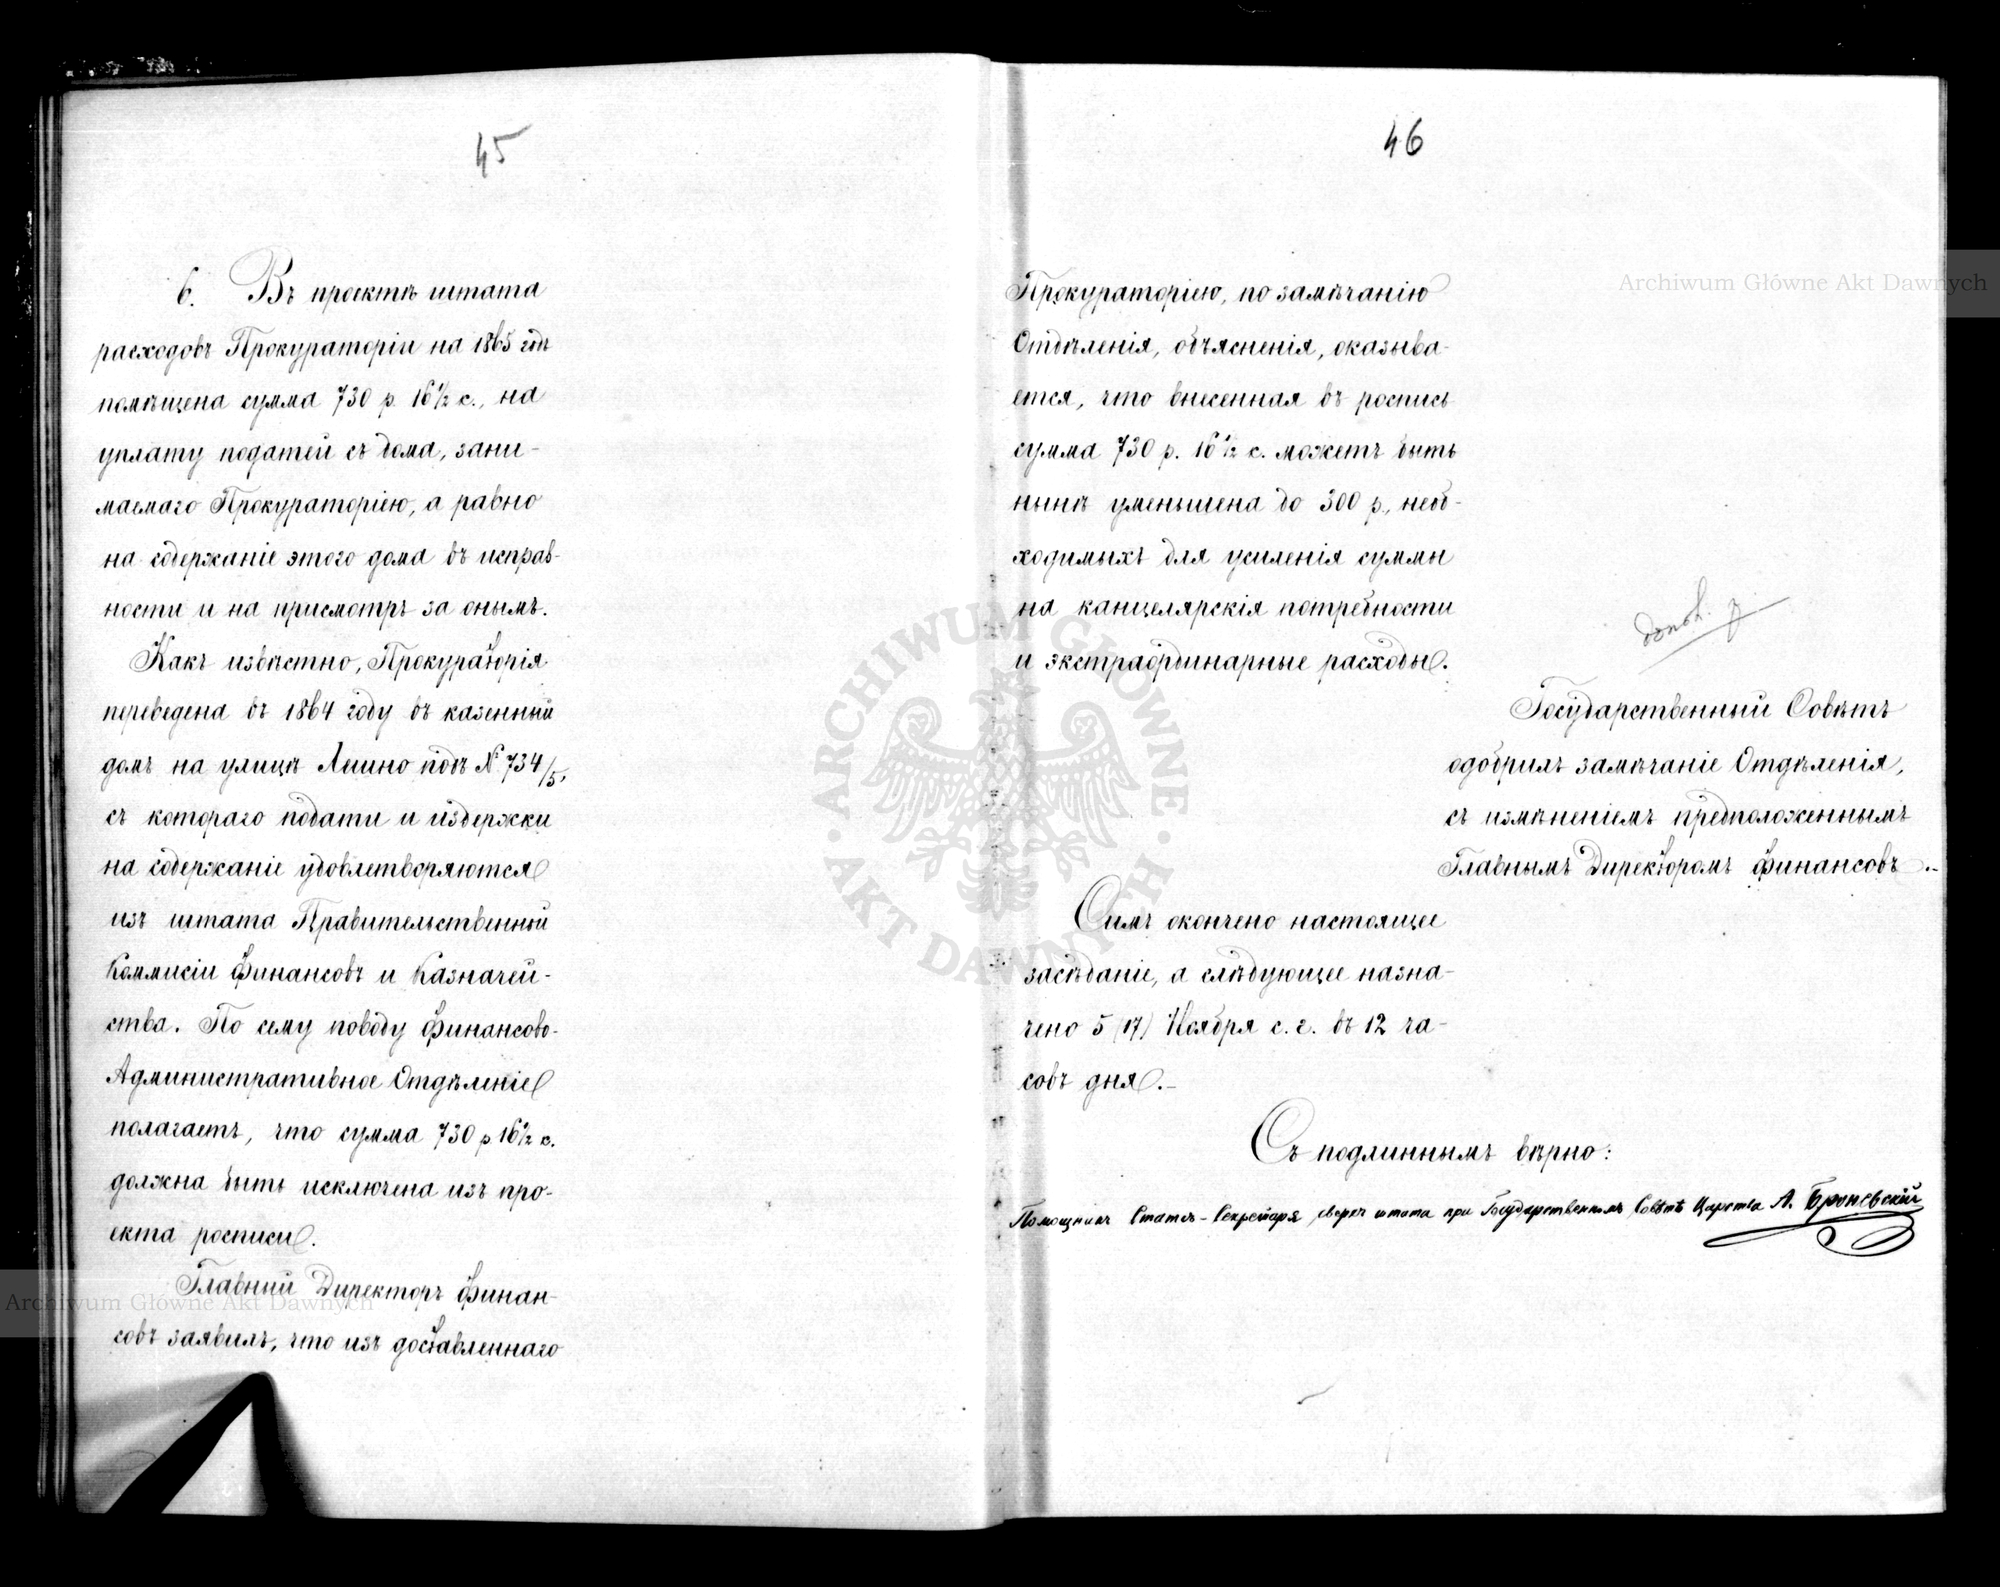 45
6. Въ проектѣ штата
расходовъ Прокураторіи на 1865 годъ
помѣщена сумма 730 р. 16½ к., на
уплату податей съ дома, зани-
маемаго Прокураторіею, а равно
на содержаніе этого дома въ исправ-
ности и на присмотръ за онымъ.
Какъ извѣстно, Прокураторія
переведена въ 1864 году въ казенный
домъ на улицѣ Лешно подъ № 734/5,
съ котораго подати и издержки
на содержаніе удовлетворяются
изъ штата Правительственный
Коммисіи Финансовъ и Казначей-
ства. По сему поводу Финансово-
Административное Отдѣленіе
полагаетъ, что сумма 730 р. 16½ к.
должна быть исключена изъ про-
екта росписи.
Главный Директоръ Финан-
совъ заявилъ, что изъ доставленнаго
46
Прокураторіею, по замѣчанію
Отдѣленія, объясненія, оказыва-
ется, что внесенная въ роспись
сумма 730 р. 16½ к. можетъ быть
нынѣ уменьшена до 300 р., необ-
ходимыхъ для усиленія суммы
на канцелярскія потребности
и экстраординарные расходы.
Государственный Совѣтъ
одобрилъ замѣчаніе Отдѣленія,
съ измѣненіемъ предположеннымъ
Главнымъ Директоромъ Финансовъ.-
Симъ окончено настоящее
засѣданіе, а слѣдующее назна-
чено 5 (17) Ноября с. г. въ 12 ча-
совъ дня.-
Съ подлиннымъ вѣрно:
Помощникъ Статсъ-Секретаря сверхъ штата при Государственномъ Совѣтѣ Царства А. Броневскій
Archiwum Główne Akt Dawnych
Archiwum Główne Akt Dawnych
ARCHIWUM GŁÓWNE AKT DAWNYCH